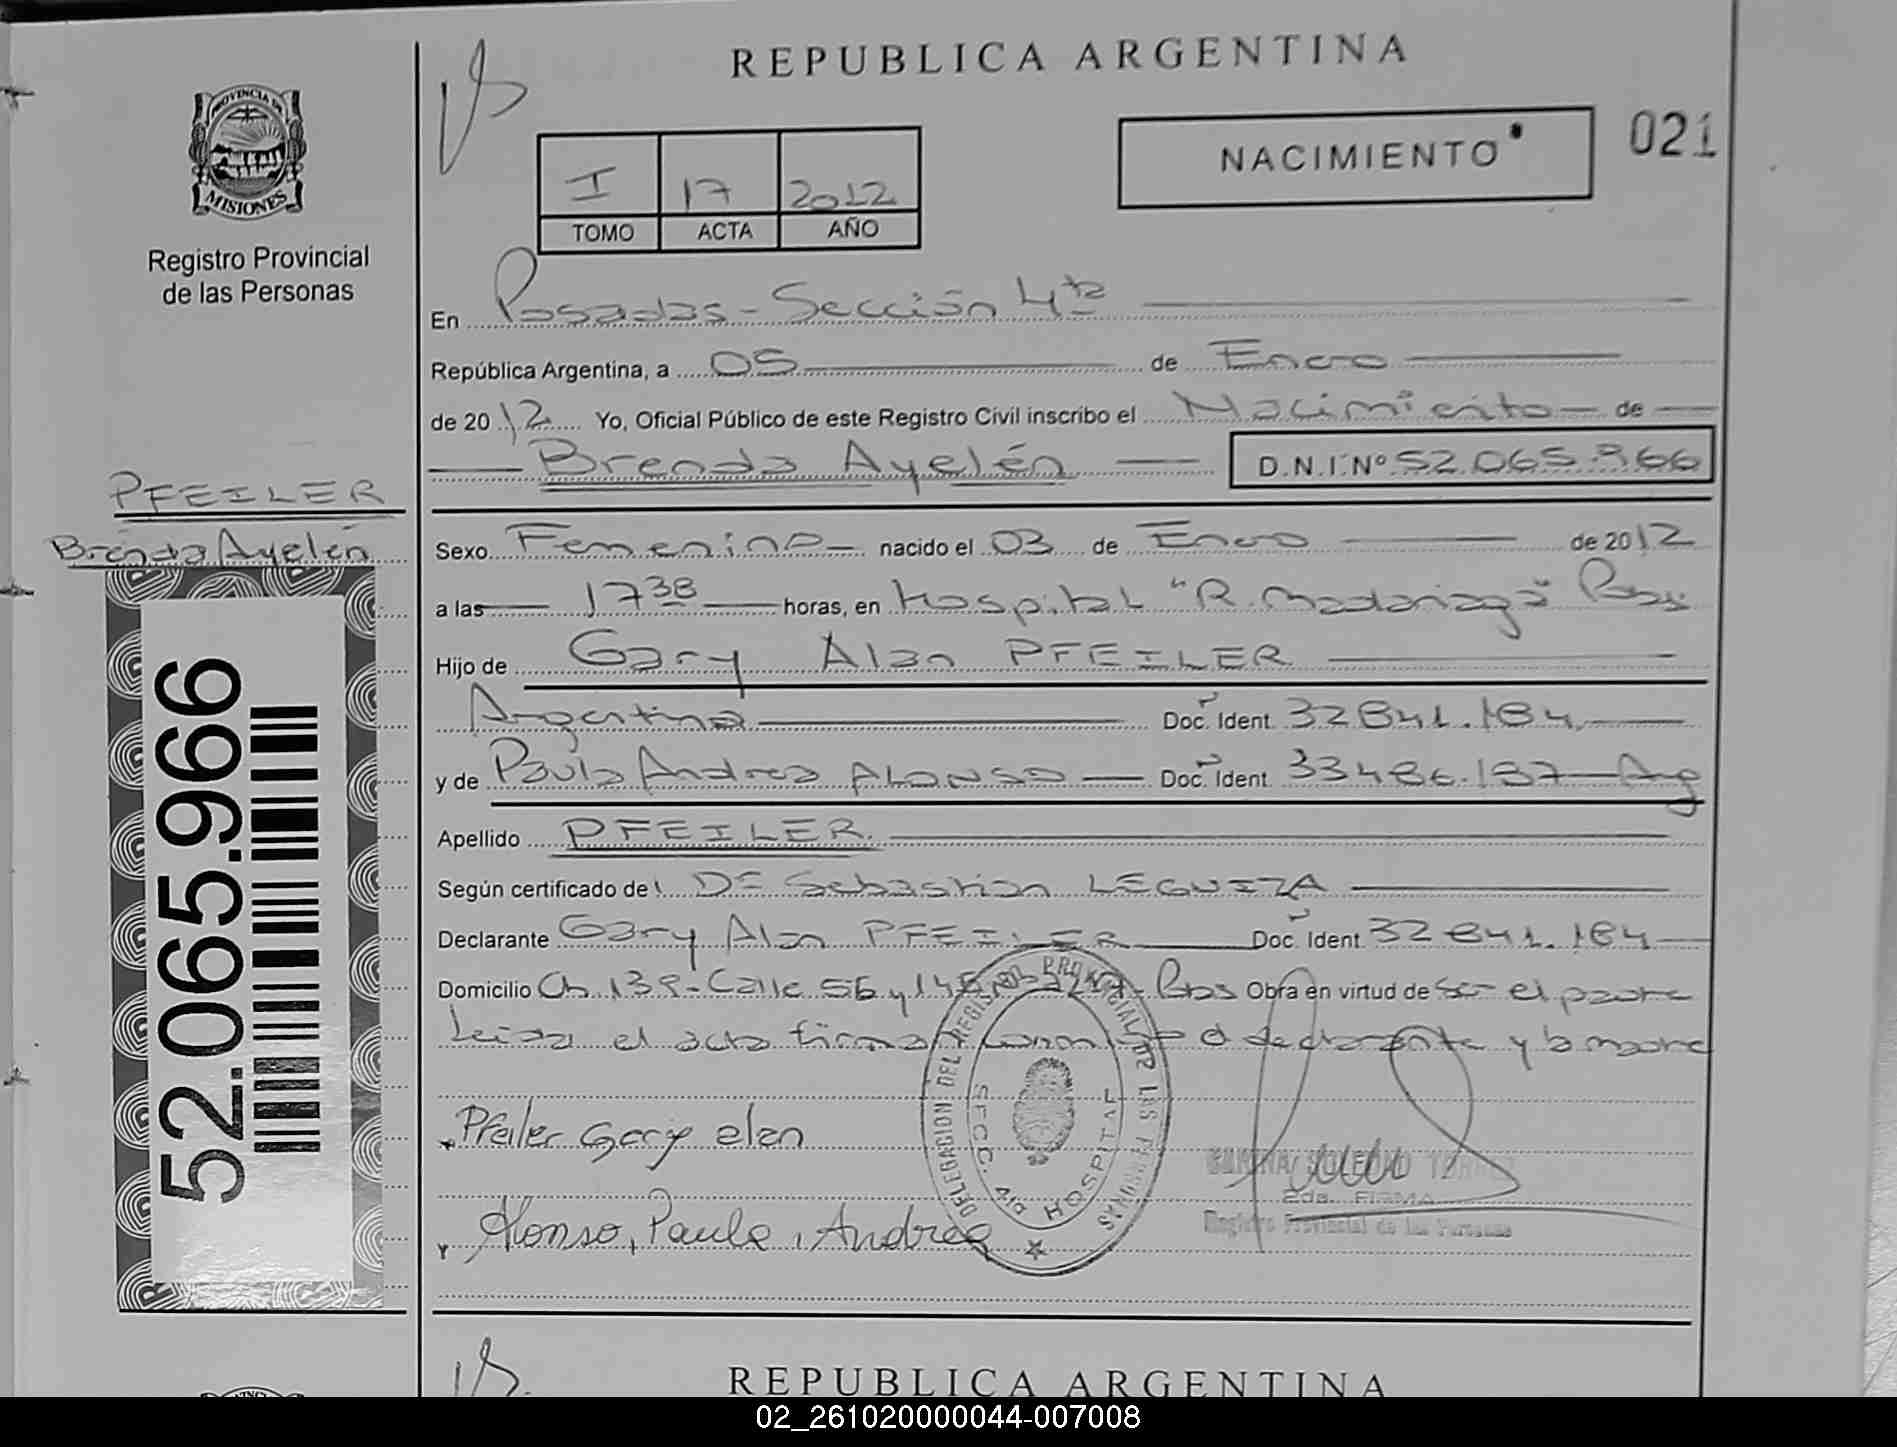 REPUBLICA ARGENTINA
PROVINCIA DE
MISIONES
Registro Provincial
de las Personas
I 17 2012
TOMO ACTA AÑO
NACIMIENTO
021
En Posadas - Sección 4ta
República Argentina, a 05 de Enero
de 2012 Yo, Oficial Público de este Registro Civil inscribo el Nacimiento de
Brenda Ayelén D.N.I. Nº 52.065.966
PFEILER
Brenda Ayelén
52.065.966
Sexo Femenino nacido el 03 de Enero de 2012
a las 17 38 horas, en Hospital "R. Madariaga" Pdas
Hijo de Gary Alan PFEILER
Argentina Doc. Ident. 32841.184
y de Paula Andrea ALONSO Doc. Ident. 33486.187 Arg
Apellido PFEILER.
Según certificado de Sebastian LEGUIZA
Declarante Gary Alan PFEILER Doc. Ident. 32841.184
Domicilio Ch. 139 - Calle 56 y Pdas Obra en virtud de ser el padre
Leida el acta firman el declarante y la madre
Pfeiler Gary alan
Alonso, Paula, Andrea
DELEGACION DEL REGISTRO PROVINCIAL DE LAS PERSONAS
SECC. DIV. HOSPITAL
SOLEDAD
2da. FIRMA
Registro Provincial de las Personas
REPUBLICA ARGENTINA
02_261020000044-007008